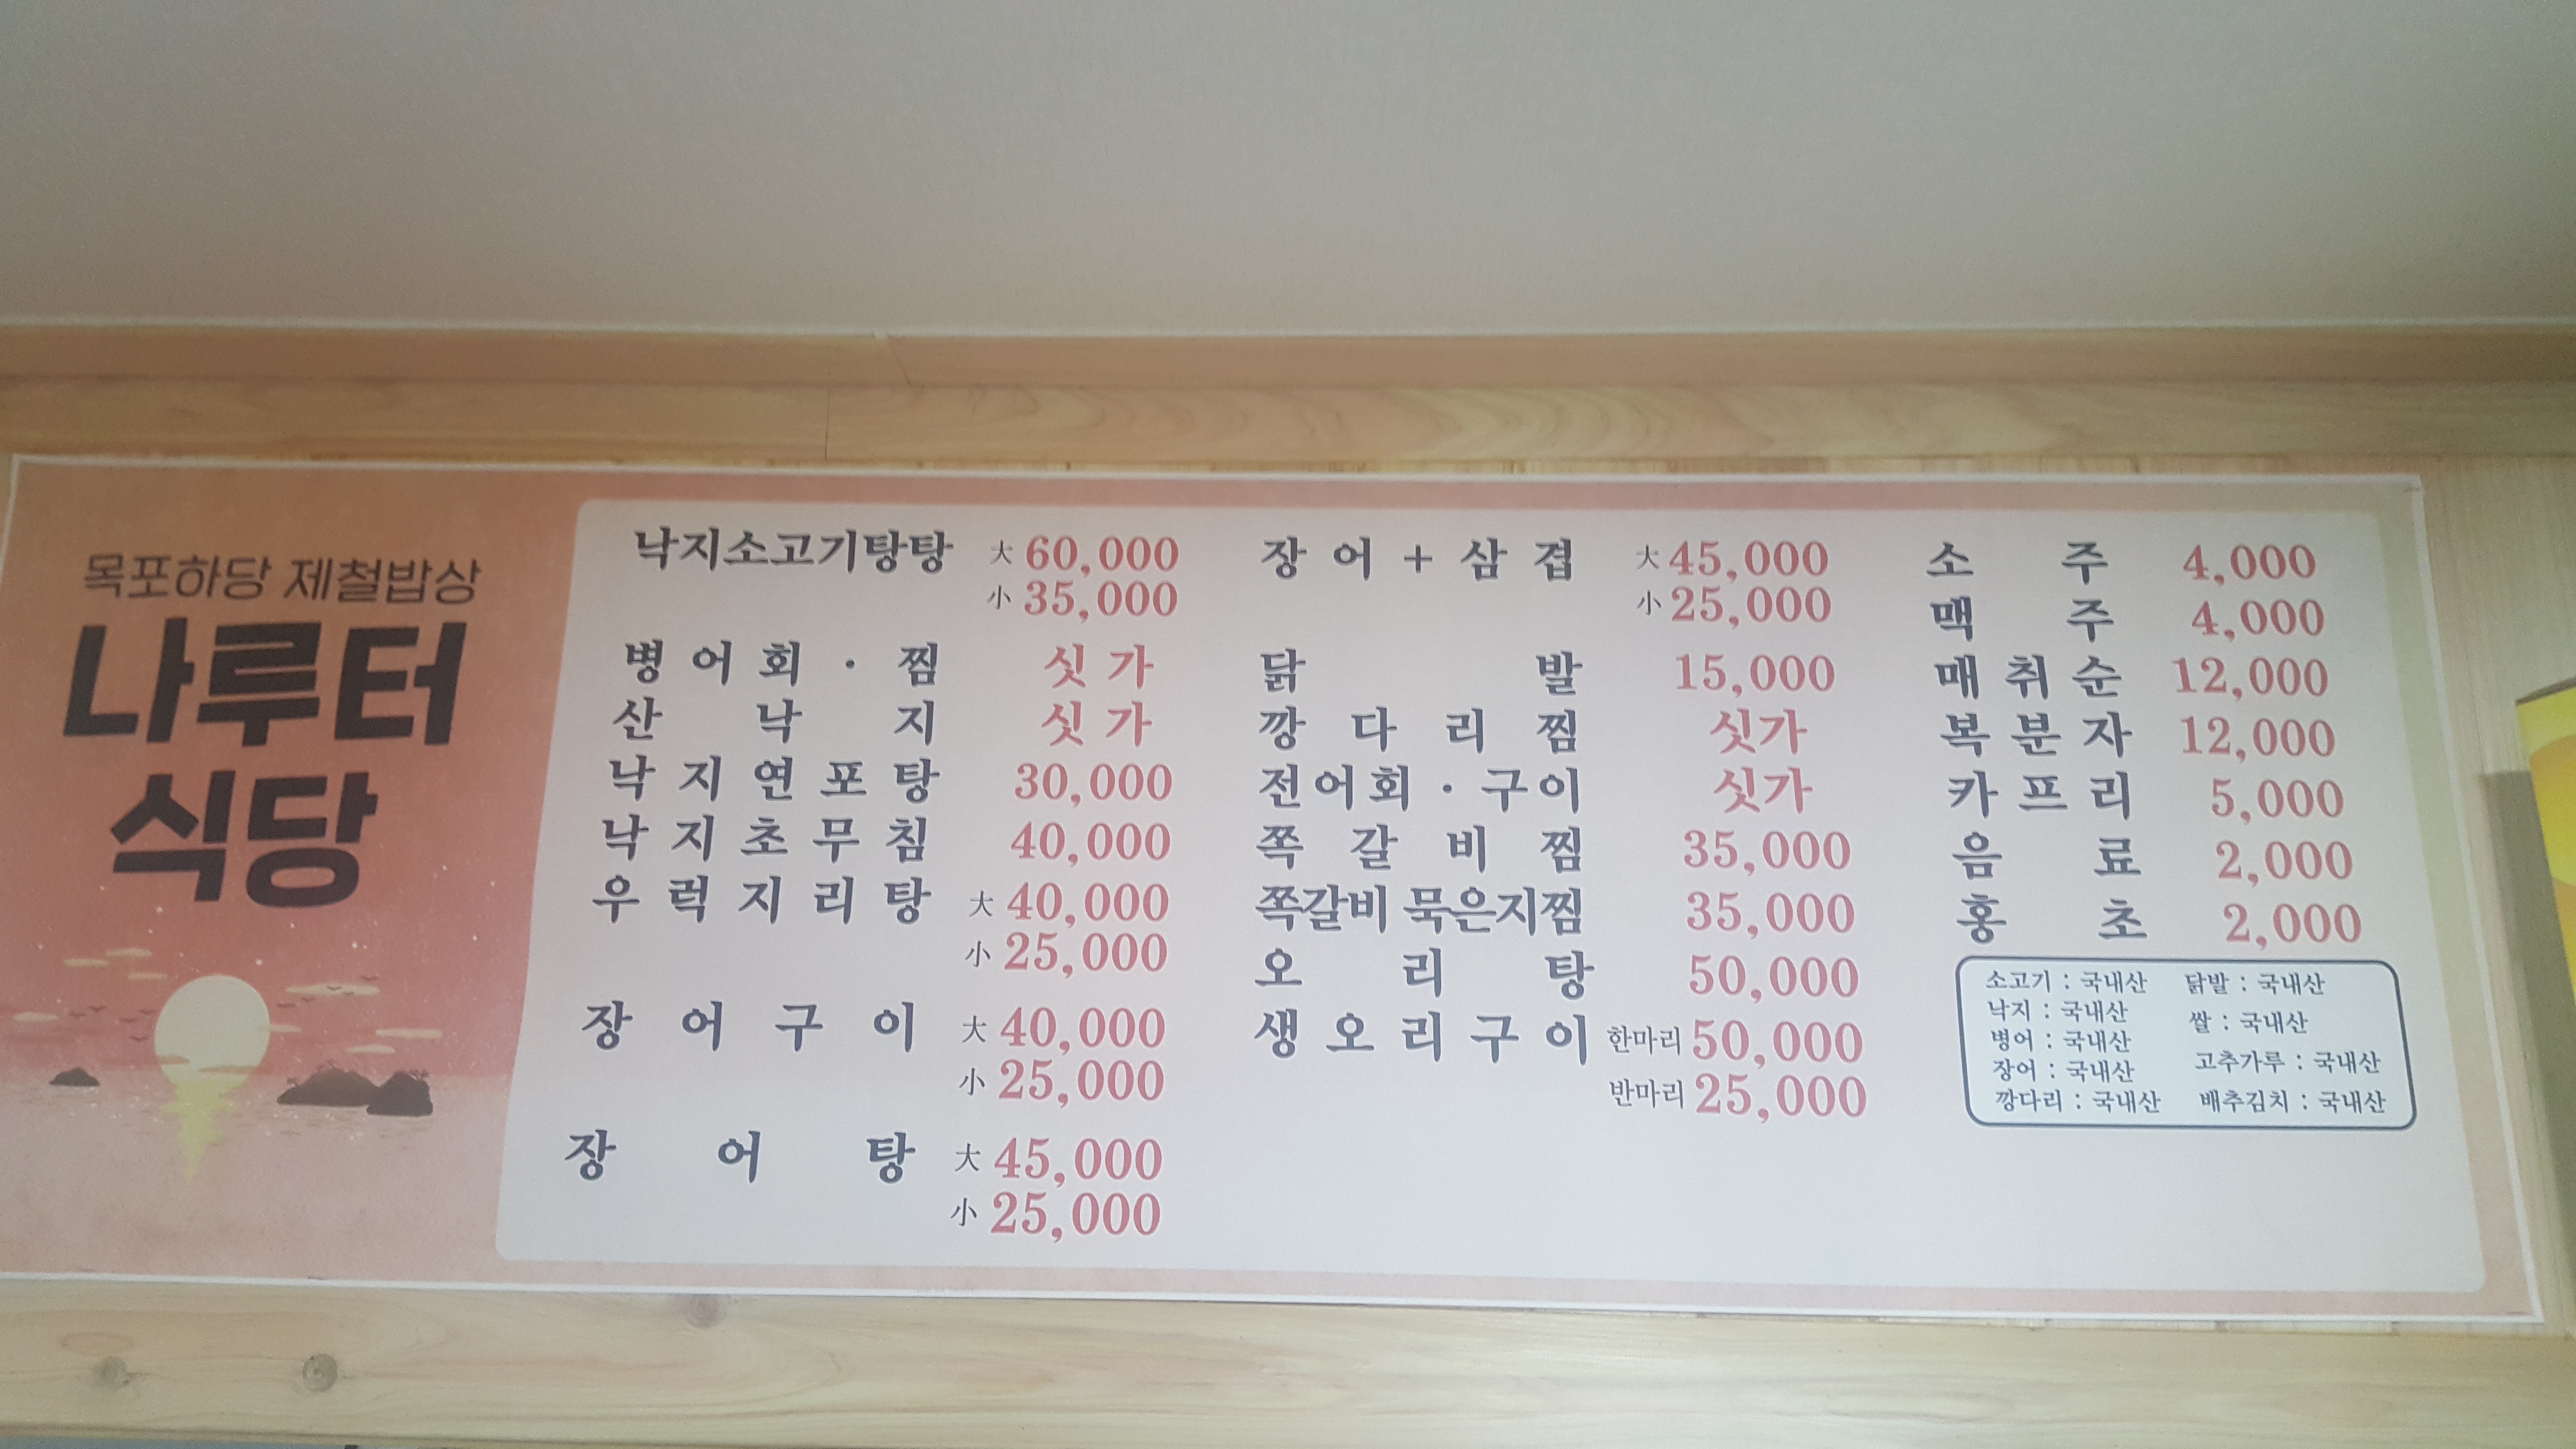 목포하당 제철밥상
나루터
식당
낙지소고기탕탕 大 60,000
小 35,000
병어회 · 찜 싯가
산낙지 싯가
낙지연포탕 30,000
낙지초무침 40,000
우럭지리탕 大 40,000
小 25,000
장어구이 大 40,000
小 25,000
장어탕 大 45,000
小 25,000
장어+삼겹 大 45,000
小 25,000
닭발 15,000
깡다리찜 싯가
전어회 · 구이 싯가
쪽갈비찜 35,000
쪽갈비 묵은지찜 35,000
오리탕 50,000
생오리구이 한마리 50,000
반마리 25,000
소주 4,000
맥주 4,000
매취순 12,000
복분자 12,000
카프리 5,000
음료 2,000
홍초 2,000
소고기 : 국내산
낙지 : 국내산
병어 : 국내산
장어 : 국내산
깡다리 : 국내산
닭발 : 국내산
쌀 : 국내산
고추가루 : 국내산
배추김치 : 국내산